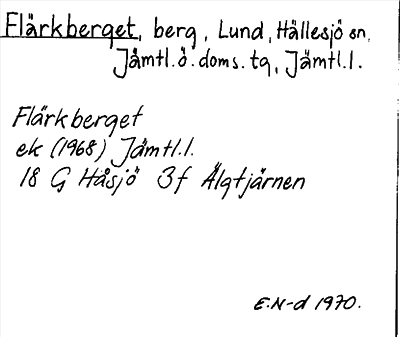 Flärkberget, berg, Lund, Hällesjö sn,
Jämtl.ö.doms.tg, Jämtl.l.
Flärkberget
ek (1968) Jämtl.l.
18 G Håsjö 3f Älgtjärnen
E.N-d 1970.